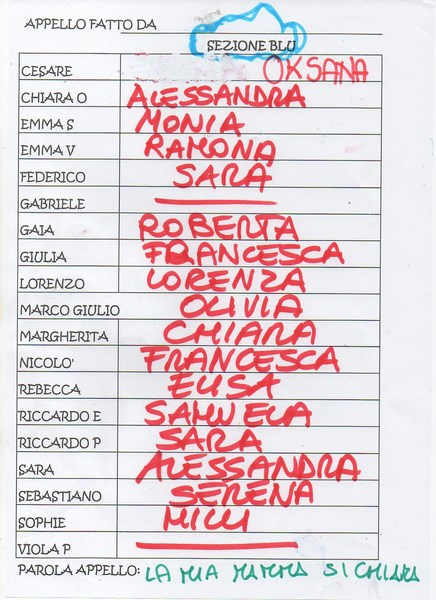 APPELLO FATTO DA
SEZIONE BLU
CESARE OKSANA
CHIARA O ALESSANDRA
EMMA S MONIA
EMMA V RAMONA
FEDERICO SARA
GABRIELE
GAIA ROBERTA
GIULIA FRANCESCA
LORENZO LORENZA
MARCO GIULIO OLIVIA
MARGHERITA CHIARA
NICOLO' FRANCESCA
REBECCA ELISA
RICCARDO E SAMUELA
RICCARDO P SARA
SARA ALESSANDRA
SEBASTIANO SERENA
SOPHIE MILLI
VIOLA P
PAROLA APPELLO: LA MIA MAMMA SI CHIAMA